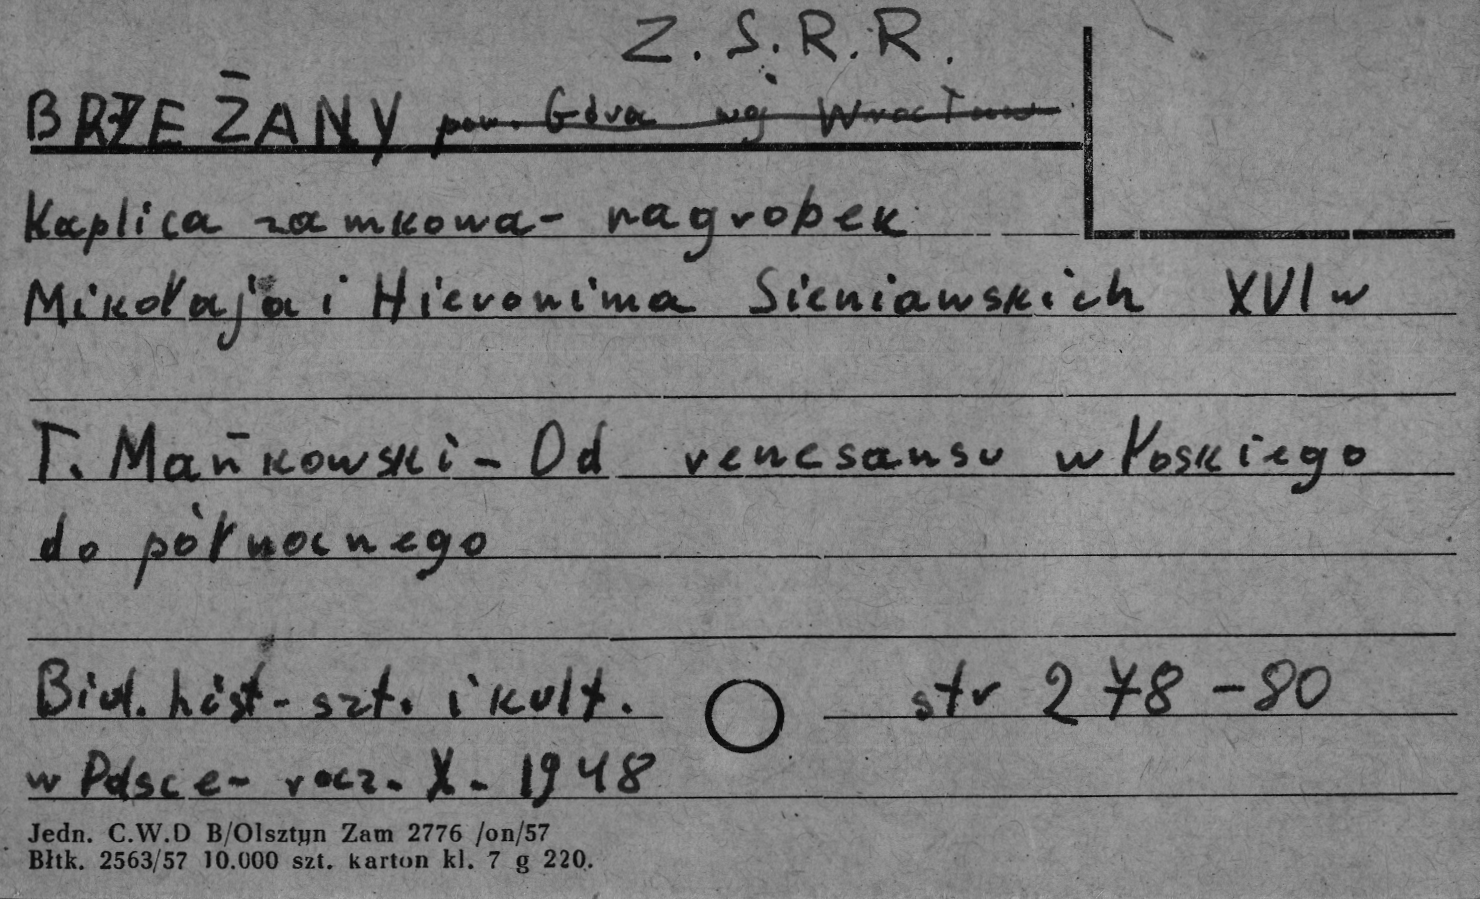 Z.S.R.R.
BRZEŻANY pow. Góra woj Wrocław
Kaplica zamkowa - nagrobek
Mikołaja i Hieronima Sieniawskich XVI w
T. Mańkowski - Od renesansu włoskiego
do północnego
Biul. hist - szt. i kult. str 278-80
w Polsce - rocz. X - 1948
Jedn. C.W.D B/Olsztyn Zam 2776 /on/57
Błtk. 2563/57 10.000 szt. karton kl. 7 g 220.